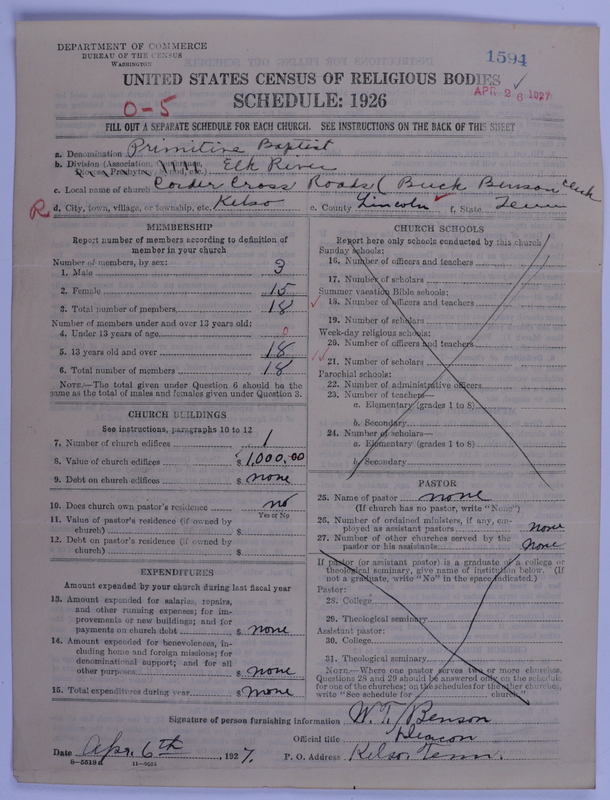 DEPARTMENT OF COMMERCE
BUREAU OF THE CENSUS
WASHINGTON
1594
UNITED STATES CENSUS OF RELIGIOUS BODIES
APR 26 1927
SCHEDULE: 1926
0-5
FILL OUT A SEPARATE SCHEDULE FOR EACH CHURCH. SEE INSTRUCTIONS ON THE BACK OF THIS SHEET
a. Denomination Primitive Baptist
b. Division (Association, Conference, Diocese, Presbytery, Synod, etc.) Elk River
c. Local name of church Corder Cross Roads (Buck Benson
R d. City, town, village, or township, etc. Kelso e. County Lincoln f. State Tenn
MEMBERSHIP
Report number of members according to definition of
member in your church
Number of members, by sex:
1. Male 3
2. Female 15
3. Total number of members, 18
Number of members under and over 13 years old:
4. Under 13 years of age 0
5. 13 years old and over 18
6. Total number of members 18
NOTE.—The total given under Question 6 should be the
same as the total of males and females given under Question 3.
CHURCH BUILDINGS
See instructions, paragraphs 10 to 12
7. Number of church edifices 1
8. Value of church edifices $ 1,000.00
9. Debt on church edifices $ none
10. Does church own pastor's residence no
Yes or No
11. Value of pastor's residence (if owned by
church) $
12. Debt on pastor's residence (if owned by
church) $
EXPENDITURES
Amount expended by your church during last fiscal year
13. Amount expended for salaries, repairs,
and other running expenses; for im-
provements or new buildings; and for
payments on church debt $ none
14. Amount expended for benevolences, in-
cluding home and foreign missions; for
denominational support; and for all
other purposes $ none
15. Total expenditures during year $ none
CHURCH SCHOOLS
Report here only schools conducted by this church
Sunday schools:
16. Number of officers and teachers
17. Number of scholars
Summer vacation Bible schools:
18. Number of officers and teachers
19. Number of scholars
Week-day religious schools:
20. Number of officers and teachers
21. Number of scholars
Parochial schools:
22. Number of administrative officers
23. Number of teachers—
a. Elementary (grades 1 to 8)
b. Secondary
24. Number of scholars—
a. Elementary (grades 1 to 8)
b. Secondary
PASTOR
25. Name of pastor none
(If church has no pastor, write "None")
26. Number of ordained ministers, if any, em-
ployed as assistant pastors none
27. Number of other churches served by the
pastor or his assistants none
If pastor (or assistant pastor) is a graduate of a college or
theological seminary, give name of institution below. (If
not a graduate, write "No" in the space indicated.)
Pastor:
28. College
29. Theological seminary
Assistant pastor:
30. College
31. Theological seminary
NOTE.—Where one pastor serves two or more churches,
Questions 28 and 29 should be answered only on the schedule
for one of the churches; on the schedules for the other churches,
write "See schedule for church."
Signature of person furnishing information W. T. Benson
Official title Deacon
Date Apr. 6th, 1927. P. O. Address Kelso, Tenn.
8-5518a 11-9051